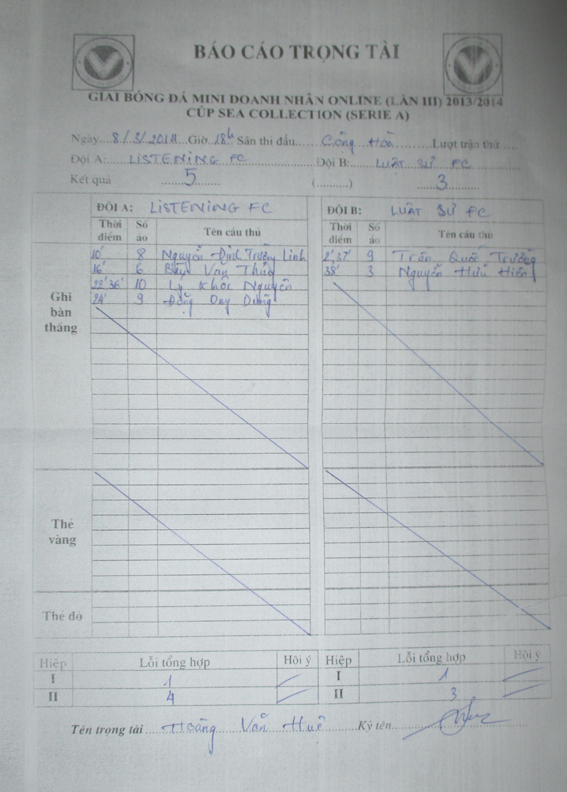 BÁO CÁO TRỌNG TÀI
GIẢI BÓNG ĐÁ MINI DOANH NHÂN ONLINE (LẦN III) 2013/2014
CÚP SEA COLLECTION (SERIE A)
Ngày 8/3/2014 Giờ 18h Sân thi đấu Cộng Hoà Lượt trận thứ
Đội A: LISTENING FC Đội B: LUẬT SƯ FC
Kết quả 5 (..........) 3
ĐỘI A: LISTENING FC ĐỘI B: LUẬT SƯ FC
Thời điểm Số áo Tên cầu thủ Thời điểm Số áo Tên cầu thủ
Ghi bàn thắng
10' 8 Nguyễn Đình Trường Linh 2', 37' 9 Trần Quốc Trường
16' 6 Văn 38' 3 Nguyễn Hữu Hiền
22' 36' 10 Lý Khôi Nguyên
24' 9 Đặng Duy Dũng
Thẻ vàng
Thẻ đỏ
Hiệp Lỗi tổng hợp Hội ý Hiệp Lỗi tổng hợp Hội ý
I 1 I 1
II 4 II 3
Tên trọng tài Hoàng Văn Huê Ký tên